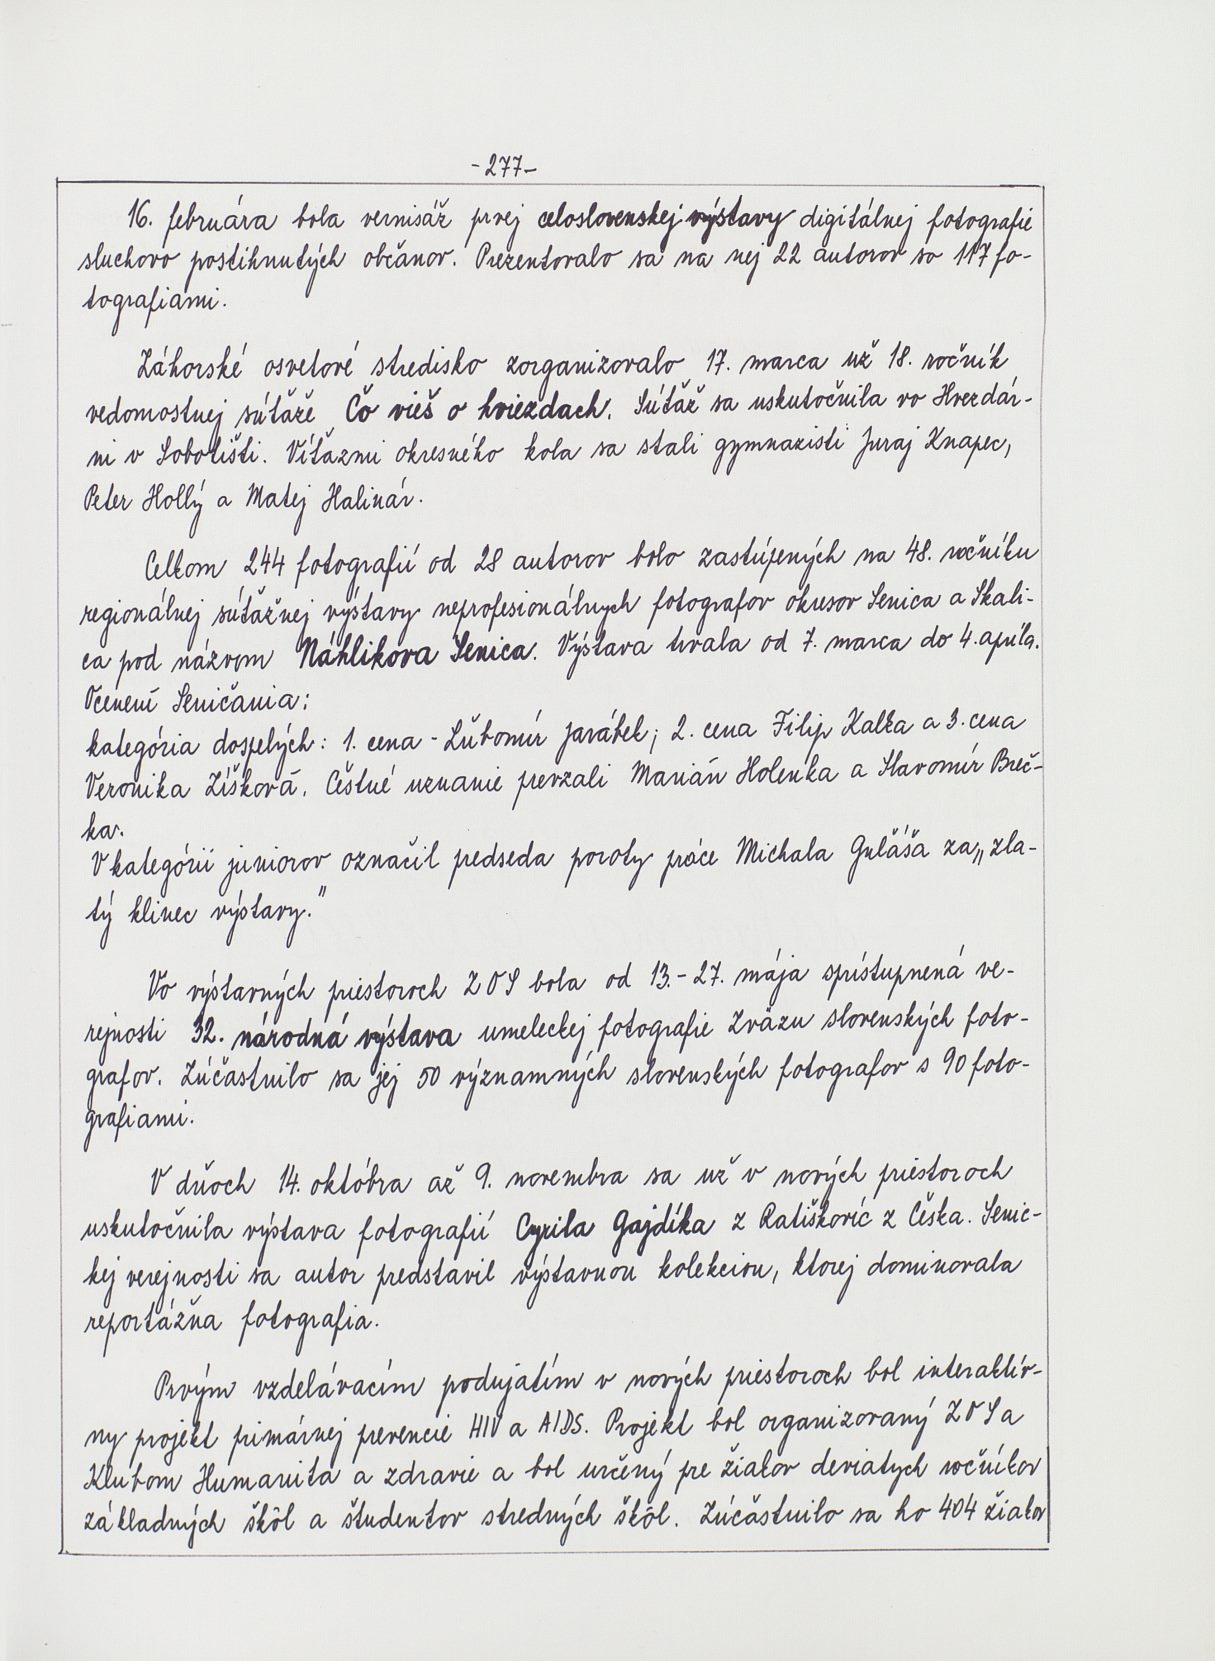 -277-
16. februára bola vernisáž prvej celoslovenskej výstavy digitálnej fotografie
sluchovo postihnutých občanov. Prezentovalo sa na nej 22 autorov so 117 fo-
tografiami.
Záhorské osvetové stredisko zorganizovalo 17. marca už 18. ročník
vedomostnej súťaže Čo vieš o hviezdach. Súťaž sa uskutočnila vo Hvezdár-
ni v Sobotišti. Víťazmi okresného kola sa stali gymnazisti Juraj Knapec,
Peter Hollý a Matej Halinár.
Celkom 244 fotografií od 28 autorov bolo zastúpených na 48. ročníku
regionálnej súťažnej výstavy neprofesionálnych fotografov okresov Senica a Skali-
ca pod názvom Náhlikova Senica. Výstava trvala od 7. marca do 4. apríla.
Ocenení Seničania:
kategória dospelých: 1. cena - Ľubomír Jarábek; 2. cena Filip Kalka a 3. cena
Veronika Zíšková. Čestné uznanie prevzali Marián Holenka a Slavomír Breč-
ka.
V kategórii juniorov označil predseda poroty práce Michala Guláša za „zla-
tý klinec výstavy."
Vo výstavných priestoroch ZOS bola od 13.-27. mája sprístupnená ve-
rejnosti 32. národná výstava umeleckej fotografie Zväzu slovenských foto-
grafov. Zúčastnilo sa jej 50 významných slovenských fotografov s 90 foto-
grafiami.
V dňoch 14. októbra až 9. novembra sa už v nových priestoroch
uskutočnila výstava fotografií Cyrila Gajdíka z Ratiškovíc z Česka. Senic-
kej verejnosti sa autor predstavil výstavnou kolekciou, ktorej dominovala
reportážna fotografia.
Prvým vzdelávacím podujatím v nových priestoroch bol interaktív-
ny projekt primárnej prevencie HIV a AIDS. Projekt bol organizovaný ZOS a
Klubom Humanita a zdravie a bol určený pre žiakov deviatych ročníkov
základných škôl a študentov stredných škôl. Zúčastnilo sa ho 404 žiakov